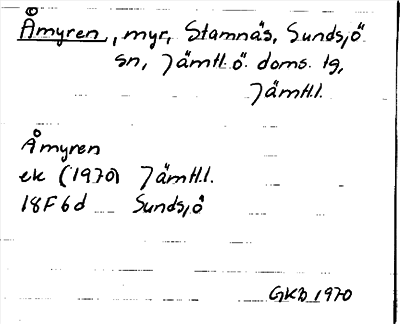 Åmyren, myr, Stamnäs, Sundsjö
sn, Jämtl.ö. doms. tg,
Jämtl.l.
Åmyren
ek (1970) Jämtl.l.
18F6d Sundsjö
GKB 1970